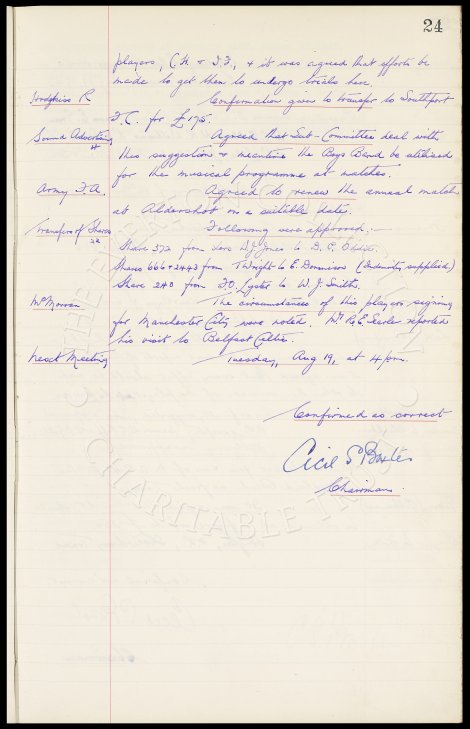 24
players, C.H. & I.F., & it was agreed that efforts be
made to get them to undergo trials here.
R Confirmation given to transfer to Southport
F.C. for £175.
Sound Advertising Agreed that Sub-Committee deal with
this suggestion & meantime the Boys Band be utilised
for the musical programme at matches.
Army F.A. Agreed to renew the annual match
at Aldershot on a suitable date.
Transfer of Shares Following were approved:-
Share 372 from W.J. Jones to D. C.
Shares 666 & 2443 from T Wright to E. (Indemnity supplied)
Share 240 from F.O. Lyster to W. J. Smith.
McMorran The circumstances of this players signing
for Manchester City were noted. Mr R.E. Searle reported
his visit to Belfast Celtic.
Next Meeting Tuesday, Aug 19, at 4 pm.
Confirmed as correct
Cecil S Baxter
Chairman.
THE EVERTON
CHARITABLE TRUST